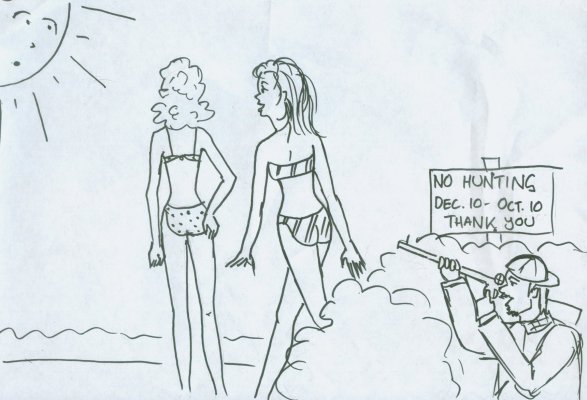 NO HUNTING
DEC. 10 - OCT. 10
THANK YOU